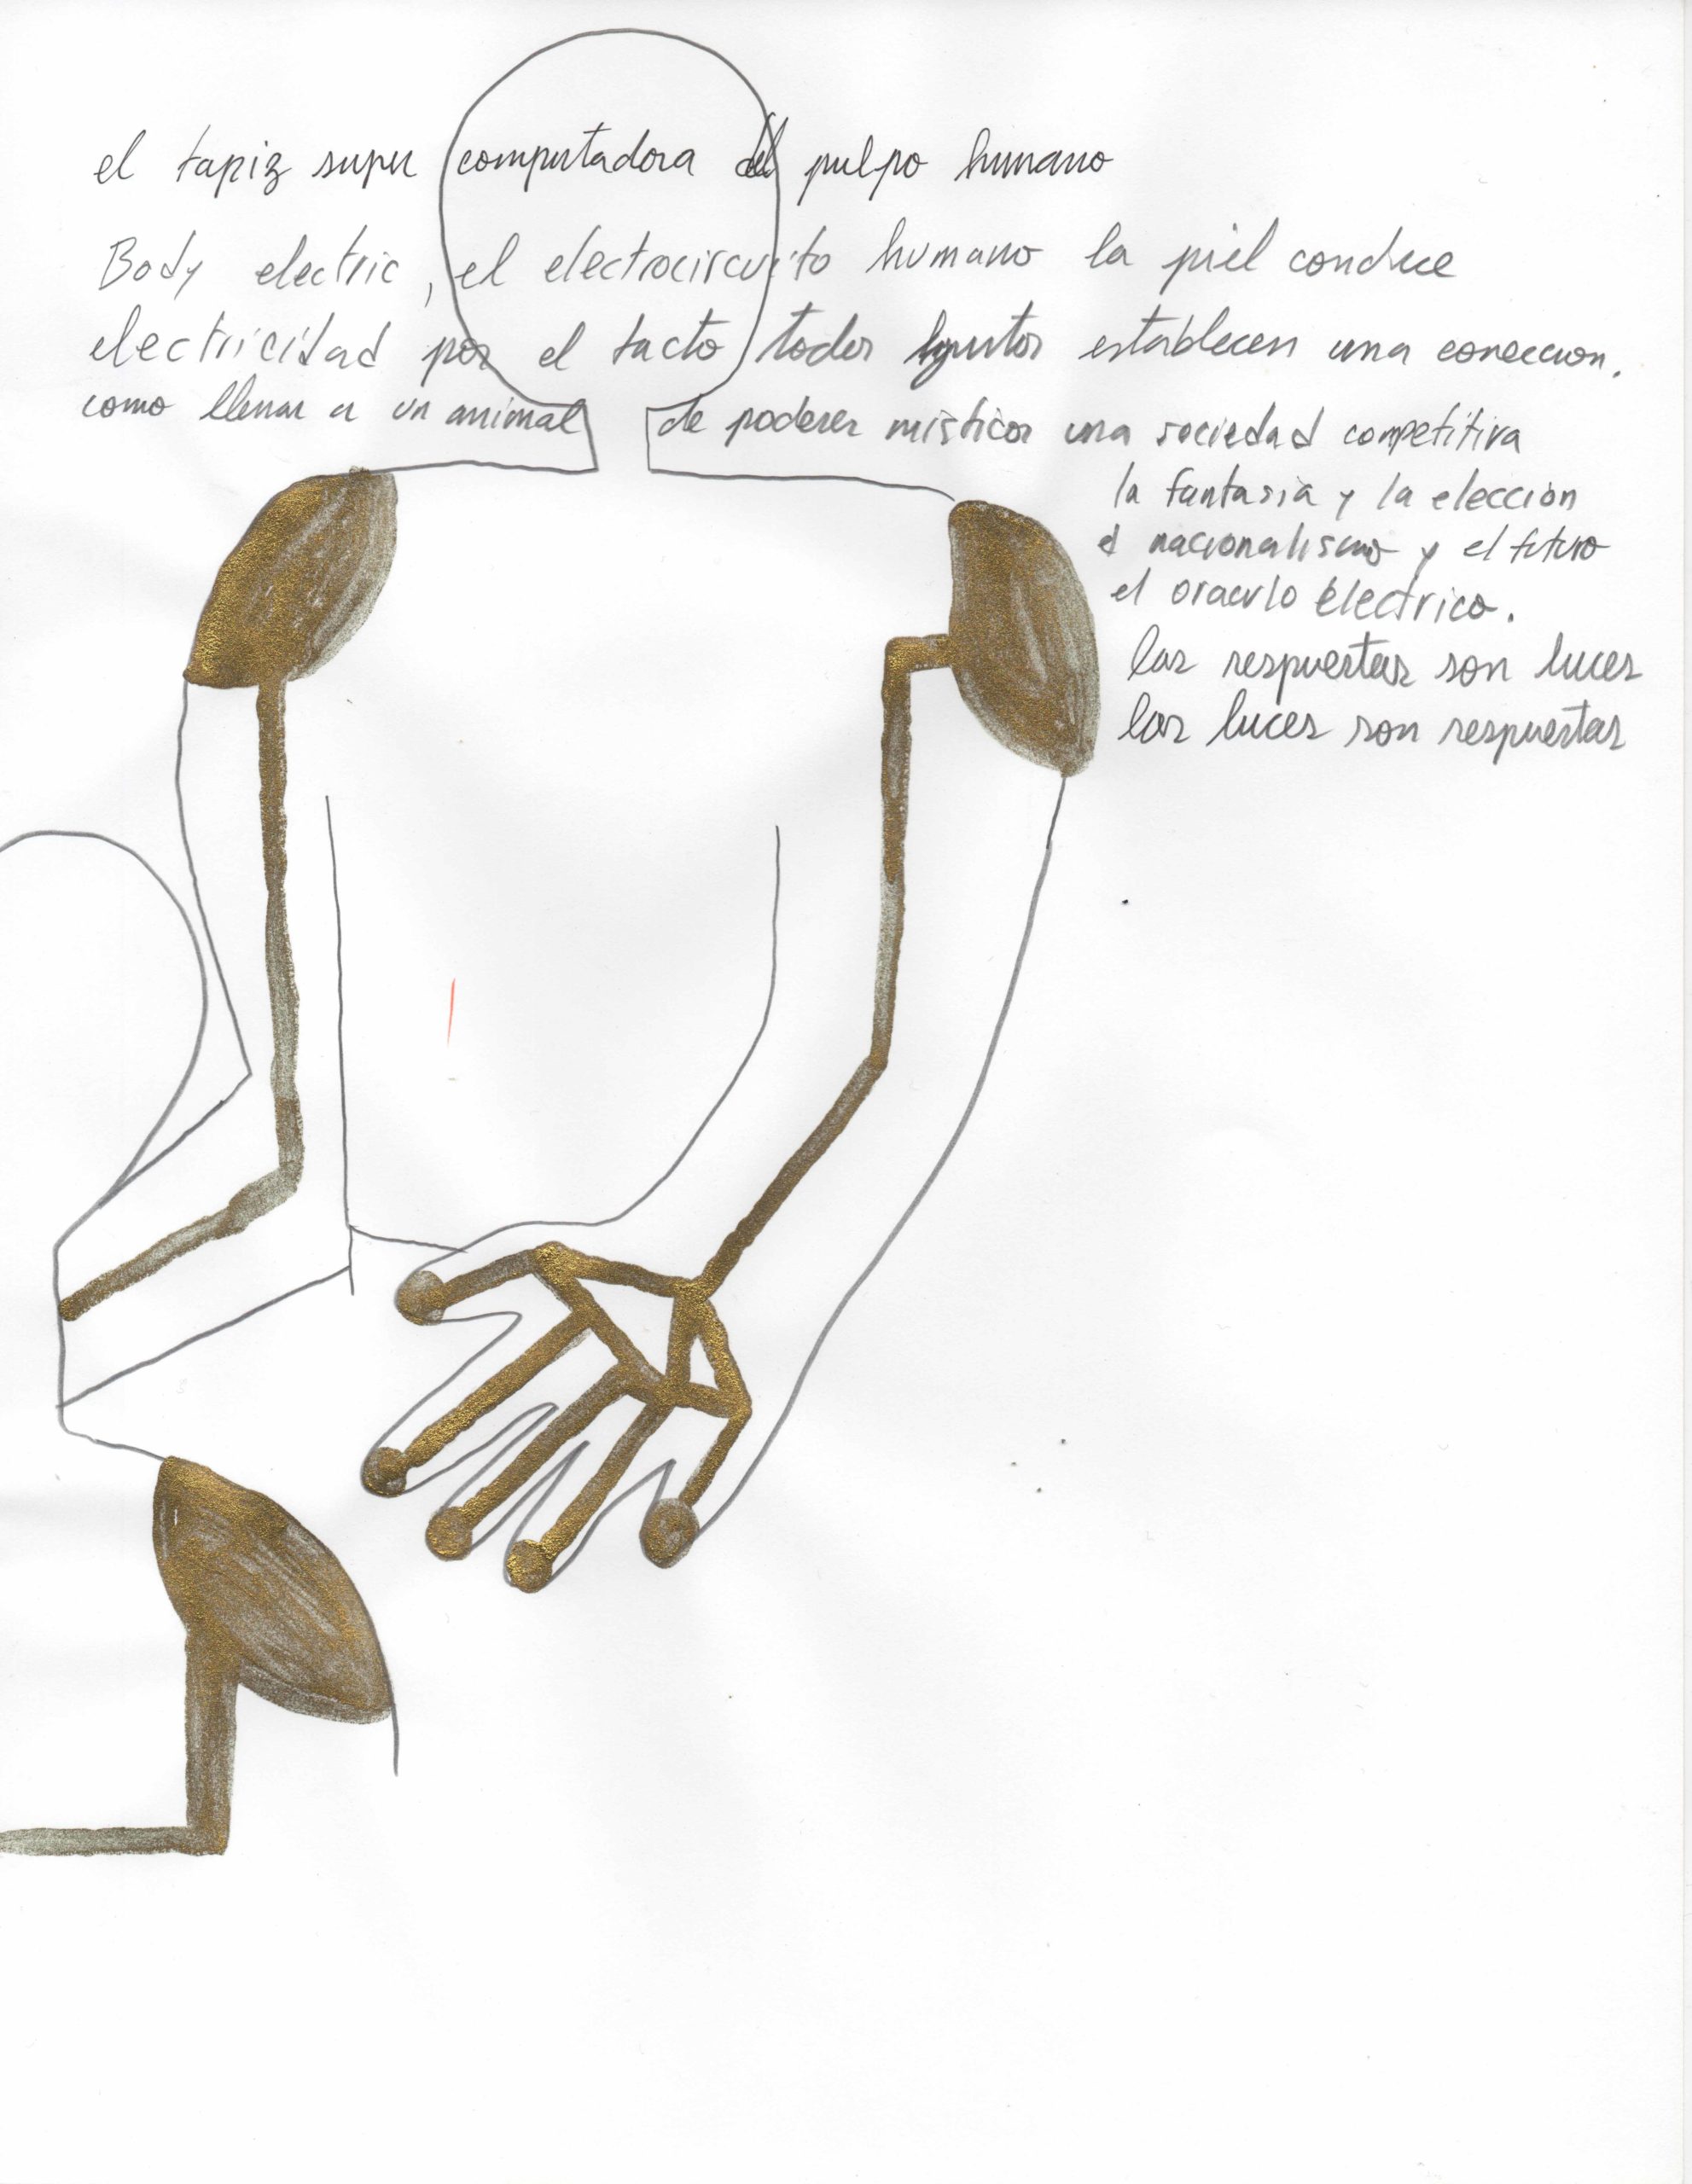 el tapiz super computadora del pulpo humano
Body electric, el electrocircuito humano la piel conduce
electricidad por el tacto todos juntos establecen una coneccion.
como llenar a un animal de poderes misticos una sociedad competitiva
la fantasia y la elección
el nacionalismo y el futuro
el oraculo électrico.
las respuestas son luces
las luces son respuestas